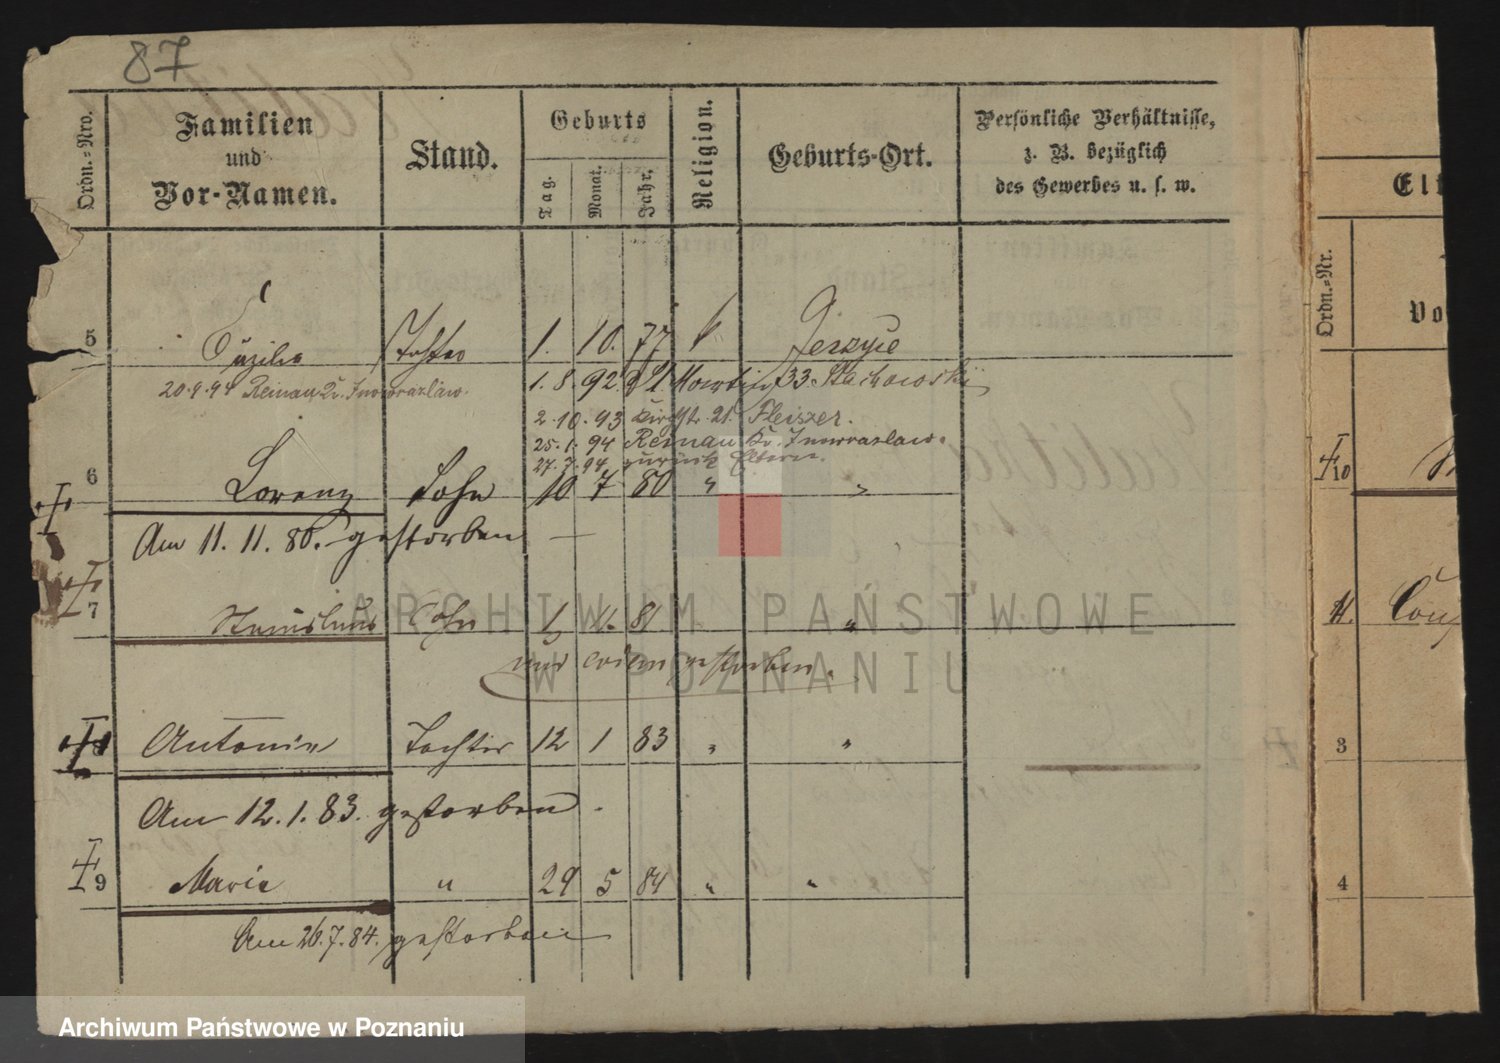 87
Ordn.-Nro.
Familien
und
Vor-Namen.
Stand.
Geburts
Tag.
Monat.
Jahr.
Religion.
Geburts-Ort.
Persönliche Verhältnisse,
z. B. bezüglich
des Gewerbes u. s. w.
5 Cäzilie Tochter 1. 10. 77 k Jerzyce
1. 8. 92. Martin 33 Stachowski
20.9.94 Reinau Kr. Inowrazlaw.
2. 10. 93 Kirchstr. 21. Fleiszer.
25. 1. 94 Reinau Kr. Inowrazlaw.
27. 7. 94 zurück Eltern.
6 Lorenz Sohn 10 7 80 " "
Am 11. 11. 80. gestorben
7 Stanislaus Sohn 81 "
gestorben.
8 Antonie Tochter 12 1 83 " "
Am 12. 1. 83. gestorben.
9 Marie " 29 5 84 " "
Am 26. 7. 84. gestorben
Elt
Ordn.-Nr.
Vo
10
11.
3
4
ARCHIWUM PAŃSTWOWE
W POZNANIU
Archiwum Państwowe w Poznaniu